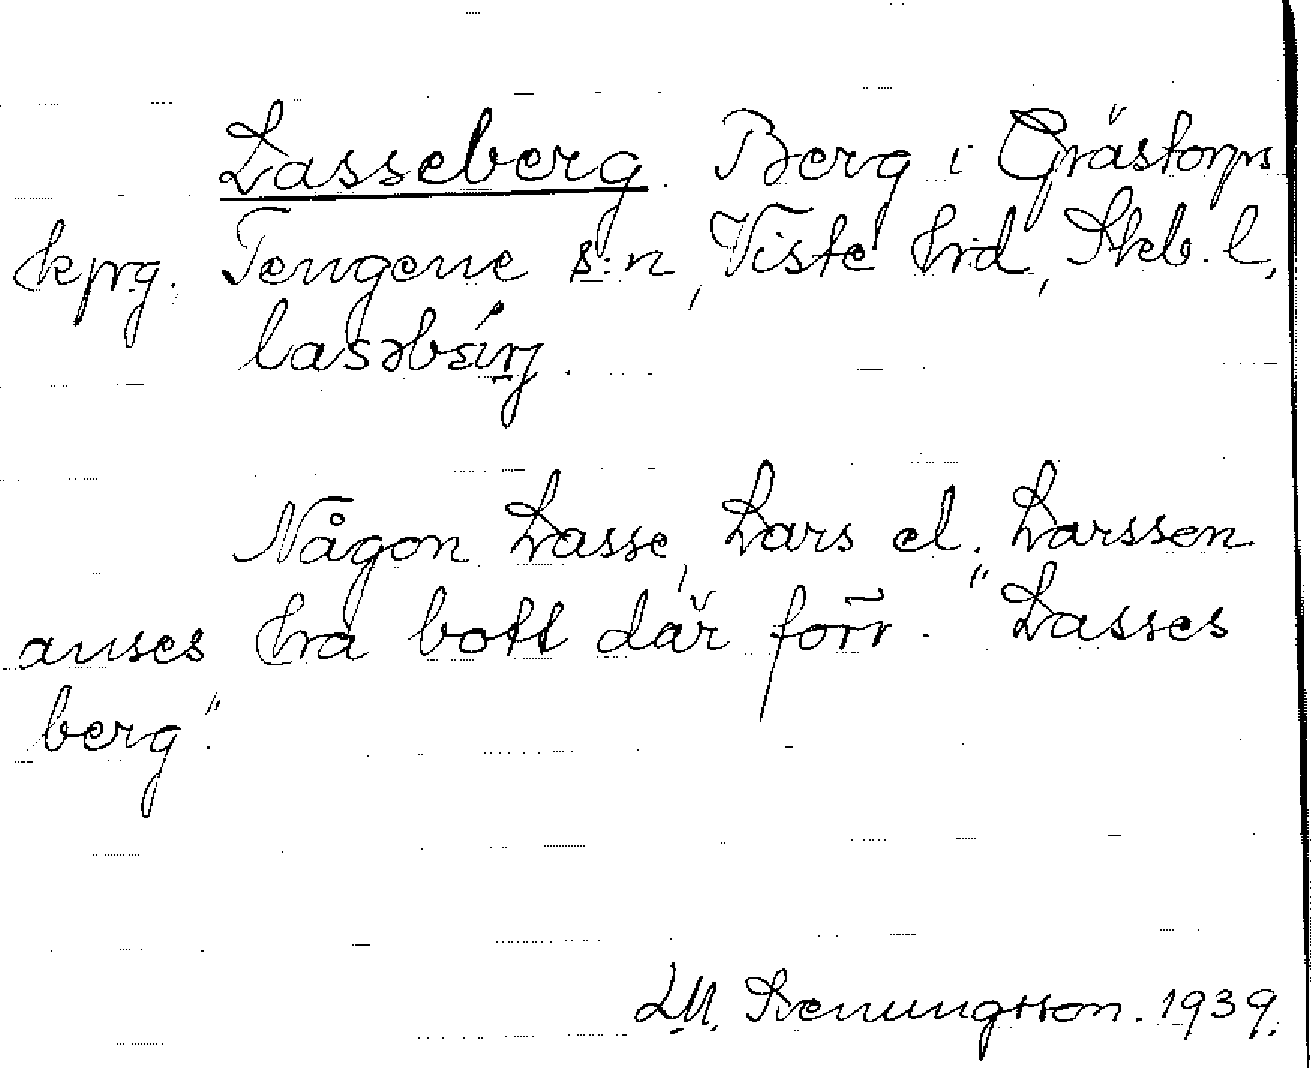 Lasseberg. Berg i Grästorps
kprg. Tengene s:n, Viste hrd, Skb. l.
Någon Lasse, Lars el. Larsson
anses ha bott där förr. "Lasses
berg".
1939.